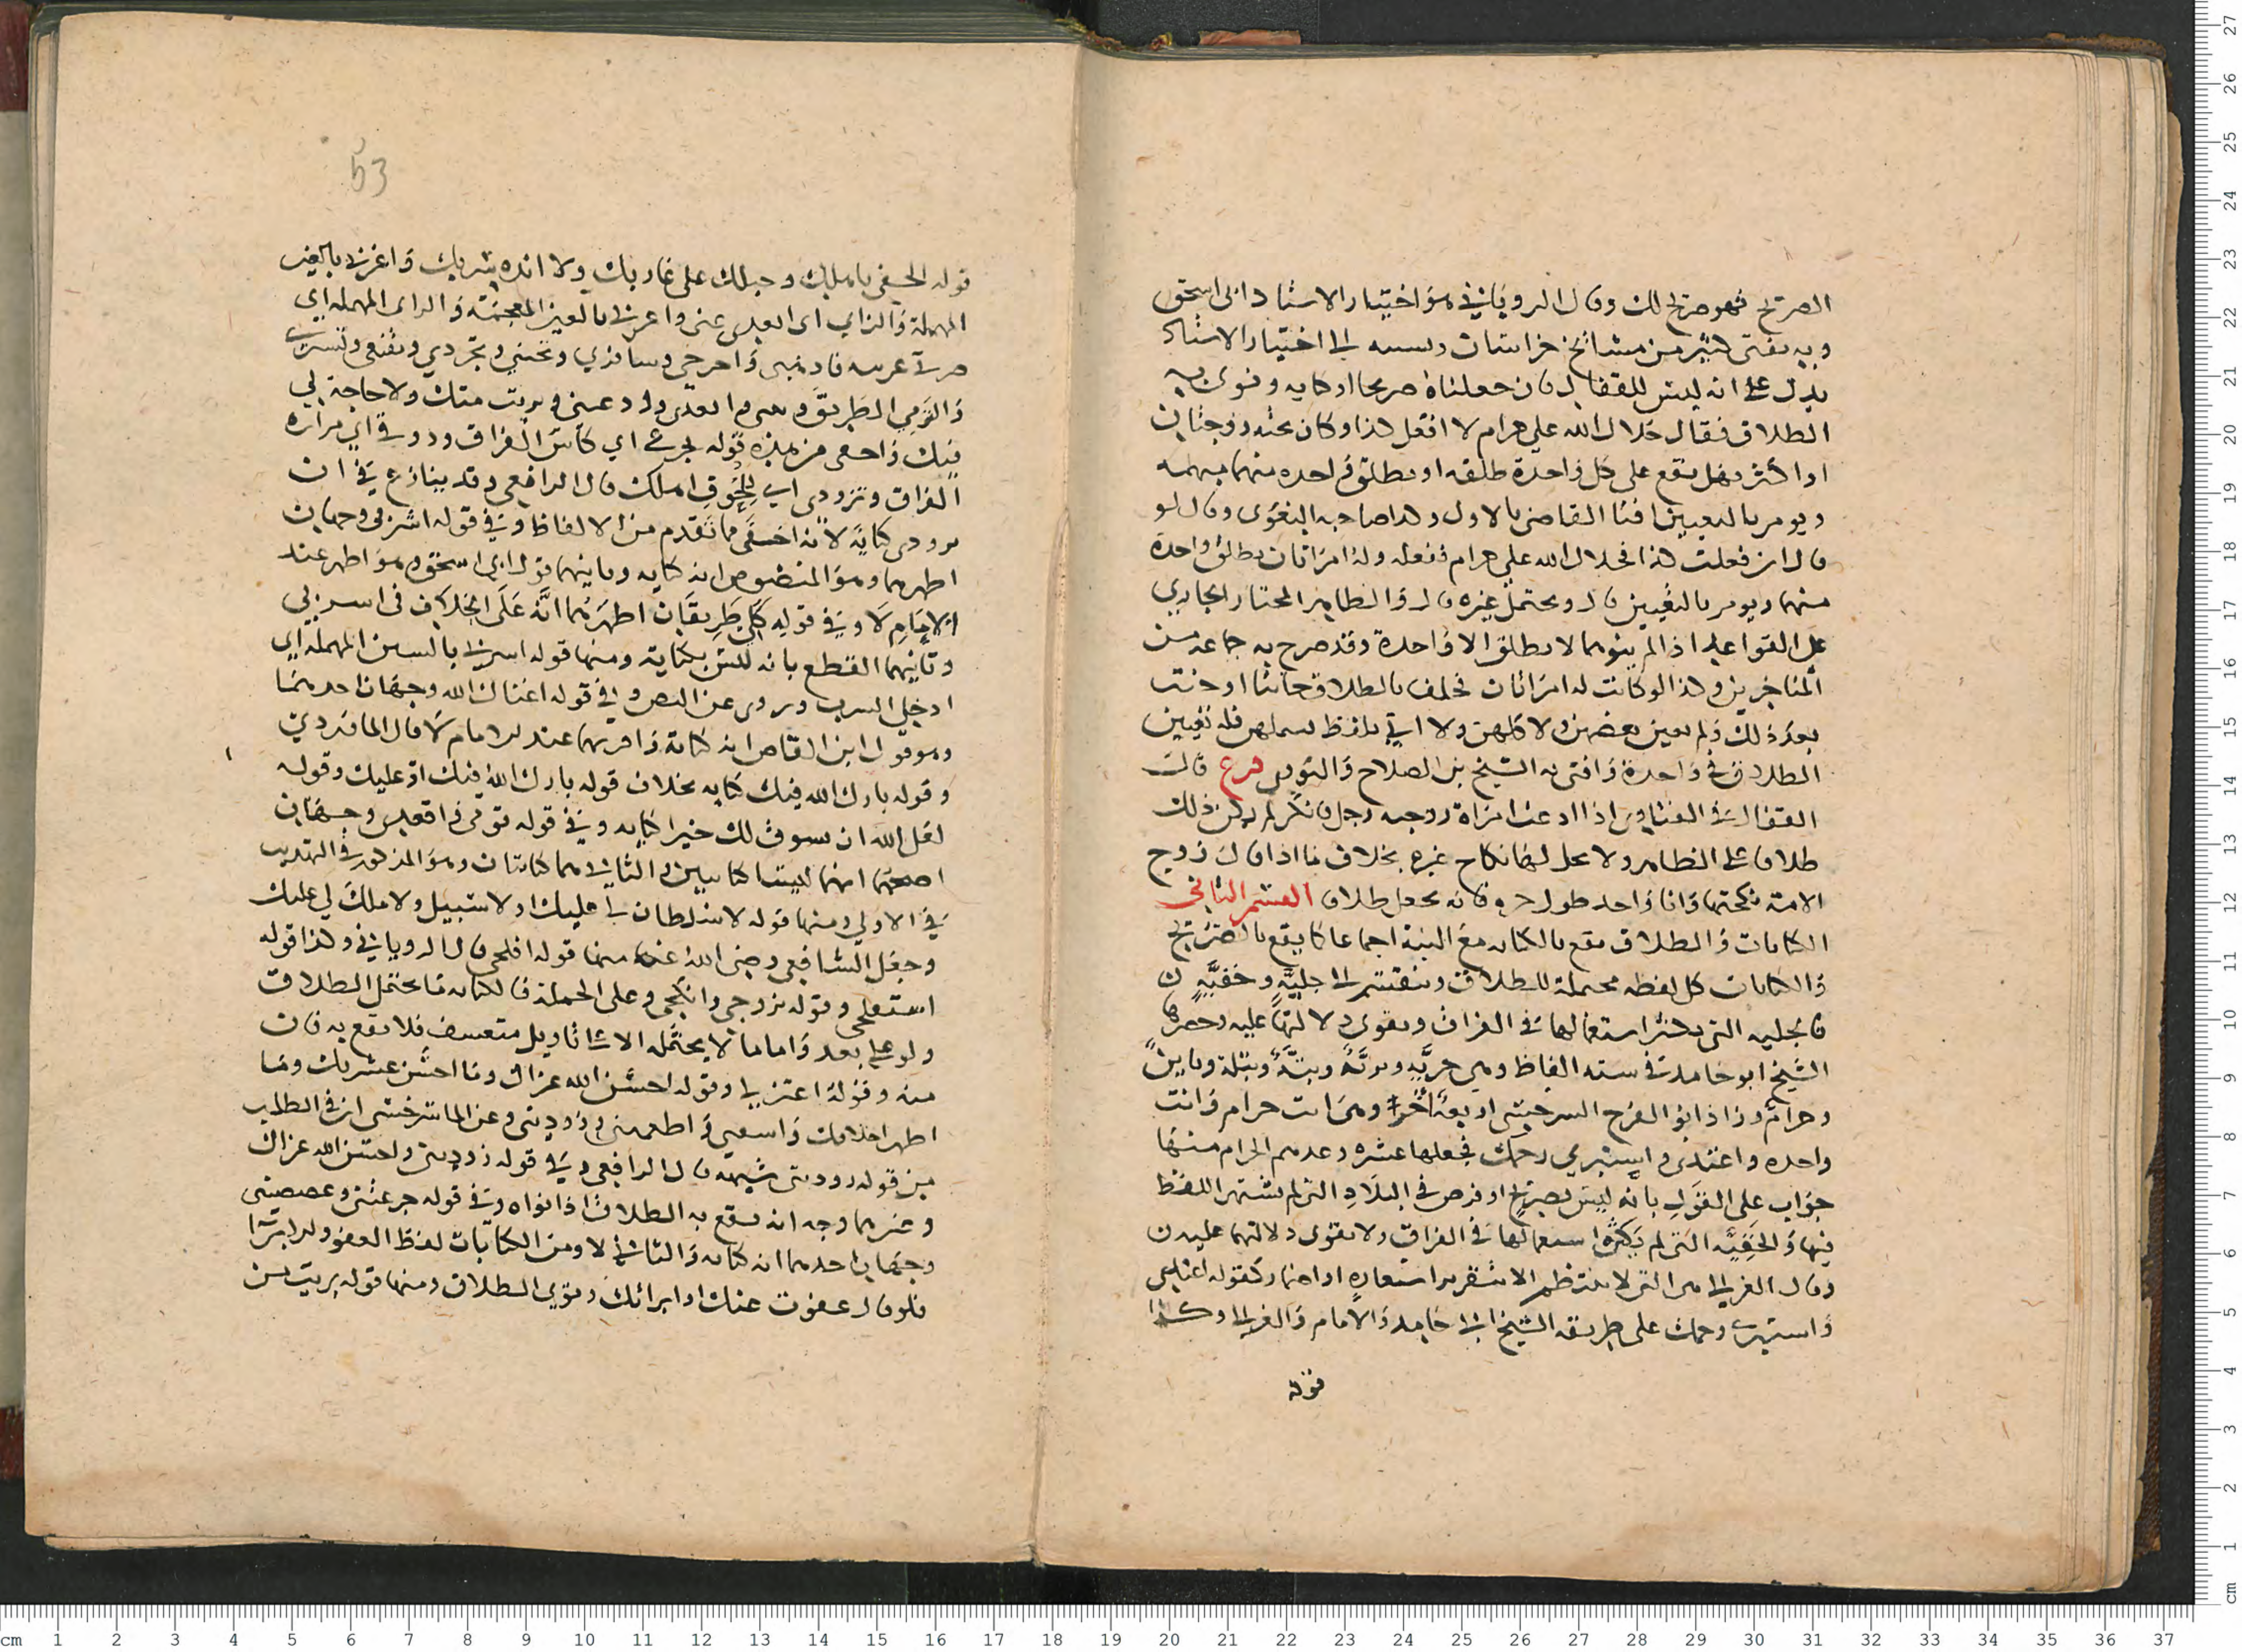 الصريح فهو صريح لك وقال الروياني هو اختيار الاستاد ابي اسحق
وبه يفتى كثير من مشائخ خراسان ونسبه الى اختيار الاستاد
يدل على انه ليس للقفال فان جعلناه صريحا او كنايه ونوى به
الطلاق فقال حلال الله علي حرام لا افعل كذا وكان تحته زوجتان
او اكثر فهل يقع على كل واحدة طلقه او يطلق واحده منهما مبهمه
ويومر بالتعيين افتا القاضي بالاول وكذا صاحبه البغوي وقال لو
قال ان فعلت كذا فحلال الله علي حرام ففعله وله امراتان يطلق واحدة
منهما ويومر بالتعيين قال ويحتمل غيره قال والظاهر المختار الجاري
على القواعد اذا لم ينوهما لا يطلق الا واحدة وقد صرح به جماعه من
المتاخرين وكذا لو كانت له امراتان فحلف بالطلاق حانثا او حنث
بعد ذلك ولم يعين بعضهن ولا كلهن ولا اتي بلفظ يسملهن فله تعيين
الطلاق في واحدة وافتى به الشيخ بن الصلاح والنووي فرع قال
القفال في الفتاوي اذا ادعت امراة زوجيه رجل فانكر لم يكن ذلك
طلاق على الظاهر ولا يحل لها نكاح غيره بخلاف ما اذا قال زوج
الامة نكحتها وانا واحد طول حره فانه يجعل طلاق القسم الثاني
الكنايات والطلاق يقع بالكنايه مع النية اجماعا كما يقع بالصريح
والكنايات كل لفظه محتملة للطلاق وينقسم الى جليَّةٍ وخفيَّةٍ
فالجليه التي يكثر استعمالها في الفراق ويقوي دلالتها عليه وحصرها
الشيخ ابو حامد في سته الفاظ وهي خريَّه وبريَّة وبتَّة وبتلة وباينٌ
وحرامٌ وزاد ابو الفرج السرخسي اربعة اخر وهي انت حرام وانت
واحده واعتدي واستبري رحمك فجعلها عشره وعدهم الحرام منها
جواب على القول بانه ليس بصريح او فرض في البلاد التي لم يشتهر اللفظ
فيها والخفيَّه التي لم يكثر استعمالها في الفراق ولا يقوى دلالتها عليه
وقال الغزالي هي التي لا ينتظم الا بتقرير استعاره او اضمار كقوله اعتدي
واستبري رحمك على طريقه الشيخ ابي حامد والامام والغزالي وكذا
قوله
53
قوله الحقي باهلك وحبلك على غاربك ولا انده سربك واعزبي بالعين
المهملة والزاي اي ابعدي عني واغربي بالغين المعجمة والراي المهمله اي
صرت غريبه واذهبي واخرجي وسافري وتجنبي وتجردي وتقنعي وتستري
والزمي الطريق وبيني وابعدي ودعيني وبريت منك ولا حاجة لي
فيك قوله تجرعي اي كاس الفراق وذوقي اي مرارة
الفراق وتزودي اي للحوق اهلك قال الرافعي وقد ينازع في ان
تزودي كناية لانه اخفى مما تقدم من الالفاظ وفي قوله اشربي وجهان
اظهرهما وهو المنصوص انه كنايه وثانيهما قول ابي اسحق وهو اظهر عند
الامام لا وفي قوله كلي طريقان اظهرهما انه على الخلاف في اشربي
وثانيهما القطع بانه ليس بكناية ومنها قوله اسربي بالسين المهمله اي
ادخلي السرب وروي عن النص وفي قوله اغناك الله وجهان احدهما
وهو قول ابن القاص انه كناية واقربهما عند الامام لا قال الماوردي
وقوله بارك الله فيك كنايه بخلاف قوله بارك الله فيك او عليك وقوله
لعل الله ان يسوق لك خيرا كنايه وفي قوله قومي واقعدي وجهان
اصحهما انهما ليستا كنايتين والثاني هما كنايتان وهو المذكور في التهذيب
في الاولى ومنها قوله لا سلطان لي عليك ولا سبيل ولا ملك لي عليك
وجعل الشافعي رضي الله عنه منها قوله افلحي قال الروياني وكذا قوله
استفلحي وقوله تزوجي وانكحي وعلى الجملة فالكنايه ما يحتمل الطلاق
ولو على بعد واما ما لا يحتمله الا على تاويل متعسف فلا يقع به فان
منه وقوله اغزلي وقوله احسن الله عزاك وما احسن عشرتك وما
اطهر اخلاقك واسقيني واطعميني وزوديني وعن الماسرخسي ان في الطلب
من قوله زوديني شبهه قال الرافعي وفي قوله زوديني واحسن الله عزاك
وغيرهما وجه انه يقع به الطلاق اذا نواه وفي قوله جرعتني وغصصتني
وجهان احدهما انه كنايه والثاني لا ومن الكنايات لفظ العفو والابرا
فلو قال عفوت عنك او ابراتك ونوي الطلاق ومنها قوله بريت من